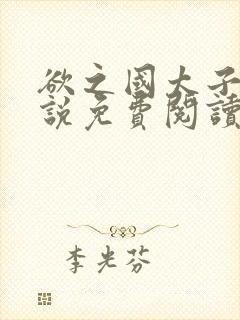 欲之國大子
說免費閱讀
李光芬